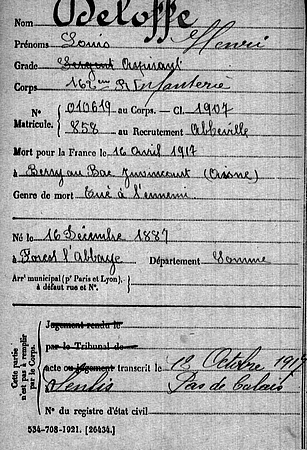 Nom Deloffe
Prénoms Louis Henri
Grade Sergent Aspirant
Corps 162ème Rt Infanterie
N° 010619 au Corps. — Cl. 1907
Matricule. 858 au Recrutement Abbeville
Mort pour la France le 16 Avril 1917
à Berry au Bac Juvincourt (Aisne)
Genre de mort Tué à l'ennemi
Né le 16 Décembre 1887
à Forest l'Abbaye Département Somme
Arrt municipal (pr Paris et Lyon),
à défaut rue et N°.
Cette partie
n'est pas à remplir
par le Corps.
Jugement rendu le
par le Tribunal de
acte ou jugement transcrit le 12 Octobre 1917
Senlis Pas de Calais
N° du registre d'état civil
534-708-1921. [26434.]